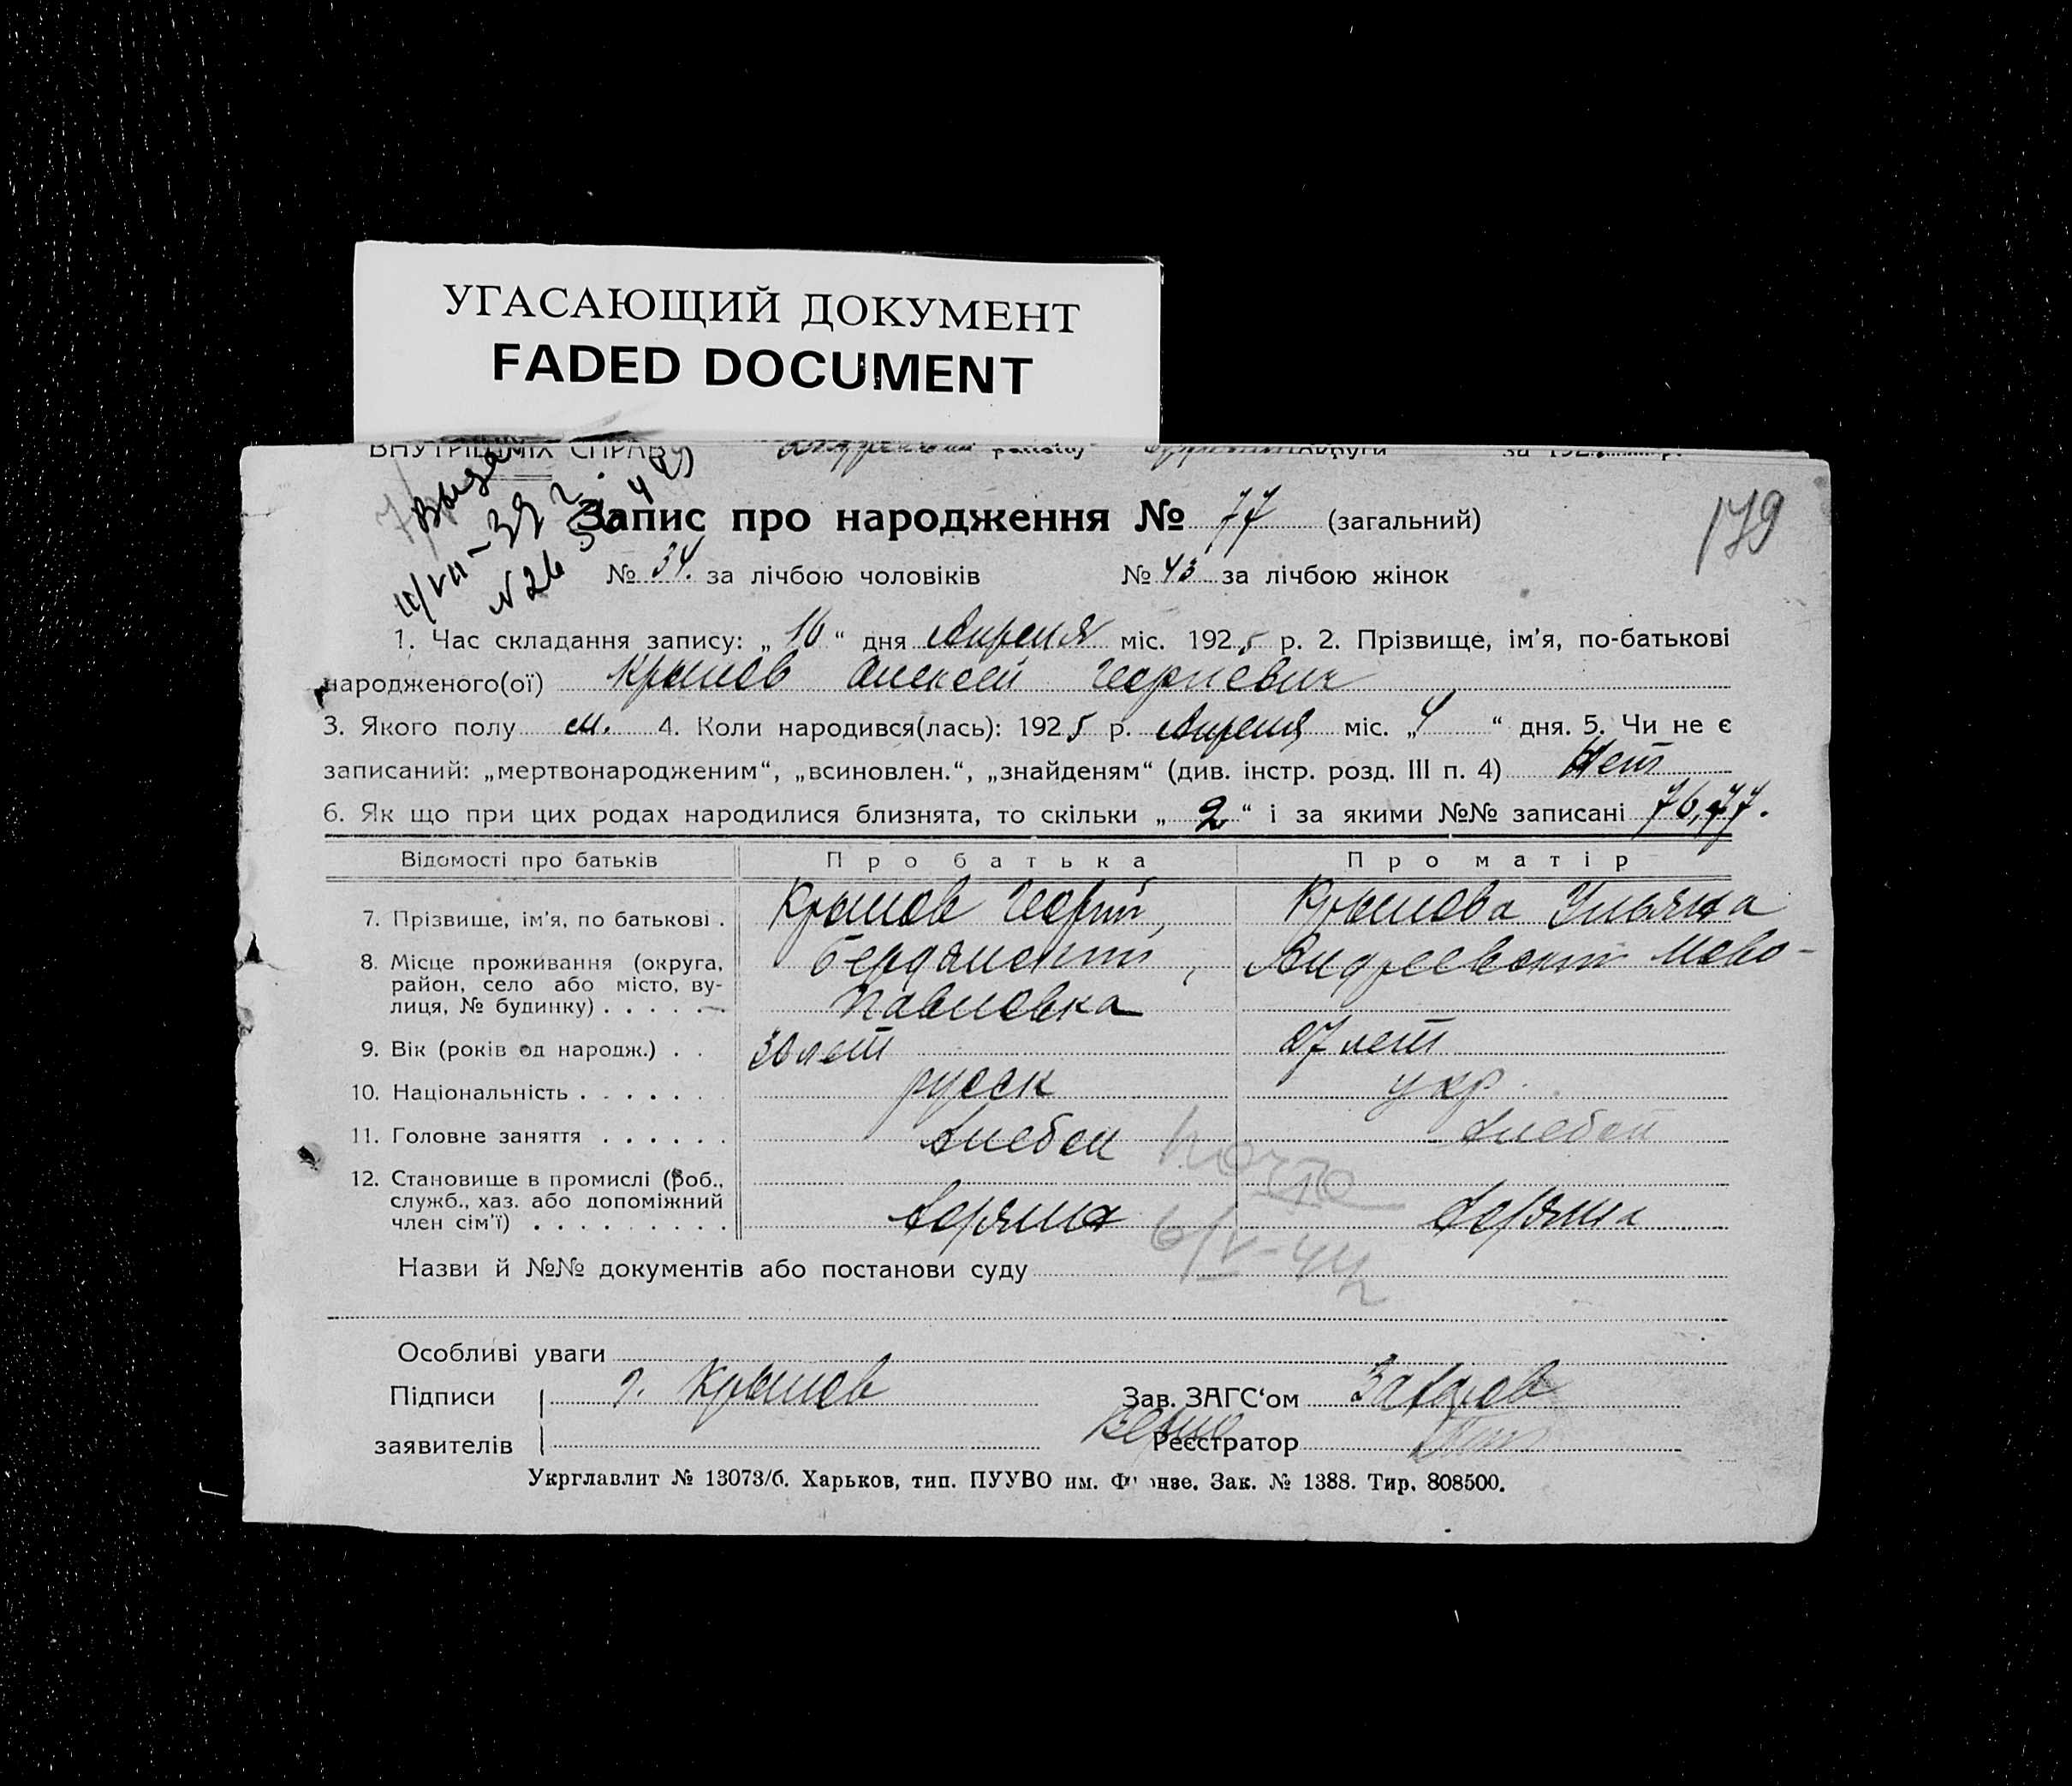 УГАСАЮЩИЙ ДОКУМЕНТ
FADED DOCUMENT
ВНУТРІШНІХ СПРАВ району округи за 192 р.
179
Запис про народження № 77 (загальний)
№ 34. за лічбою чоловіків № 43 за лічбою жінок
1. Час складання запису: „ 10 “ дня Апреля міс. 1925 р. 2. Прізвище, ім’я, по-батькові
народженого(ої) Крылов Алексей Георгиевич
3. Якого полу м. 4. Коли народився(лась): 1925 р. Апреля міс. „4 “ дня. 5. Чи не є
записаний: „мертвонародженим“, „всиновлен.“, „знайденям“ (див. інстр. розд. III п. 4) Нет
6. Як що при цих родах народилися близнята, то скільки „ 2 “ і за якими №№ записані 76, 77.
Відомості про батьків Про батька Про матір
7. Прізвище, ім’я, по батькові . Крылов Георгий, Крылова Ульяна
8. Місце проживання (округа, Бердянский, Андреевский Ново-
район, село або місто, ву-
лиця, № будинку) . . . . . . Павловка
9. Вік (років од народж.) . . 30 лет 27 лет
10. Національність . . . . . . русск укр.
11. Головне заняття . . . . . . Хлебоп Хлебоп
12. Становище в промислі (роб.,
служб., хаз. або допоміжний
член сім’ї) . . . . . . . . .
6/V-44
Назви й №№ документів або постанови суду
Особливі уваги
Підписи Г. Крылов Зав. ЗАГС‘ом Захаров
Верно
заявителів Реєстратор
Укрглавлит № 13073/б. Харьков, тип. ПУУВО им. Фрунзе. Зак. № 1388. Тир. 808500.